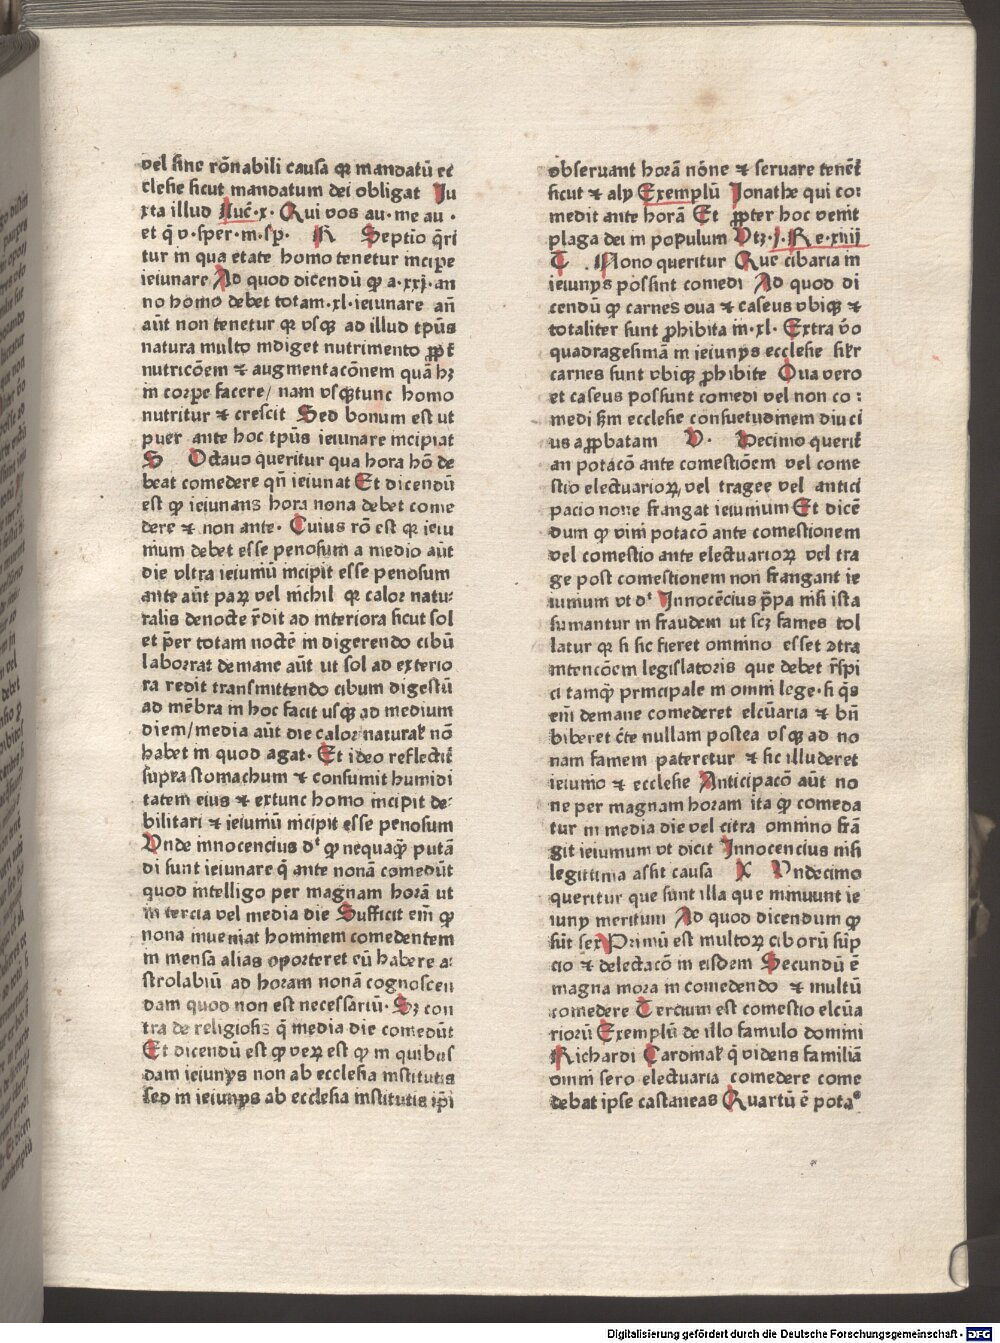 vel sine rõnabili causa qꝛ mandatũ ec
clesie sicut mandatum dei obligat Iu
xta illud Luc̃·x· Qui vos au·me au·
et q̃ v·sper·m·sp̱· R Septio q̃ri
tur in qua etate homo tenetur incipe
ieiunare Ad quod dicendũ ꝙ a·xxj·an
no homo debet totam·xl·ieiunare añ
aũt non tenetur qꝛ vsqꝫ ad illud tp̃us
natura multo indiget nutrimento ꝓpt̃
nutricõem ⁊ augmentacõnem quã hꝫ
in corpe facere/ nam vsqꝫtunc homo
nutritur ⁊ crescit Sed bonum est ut
puer ante hoc tp̃us ieiunare incipiat
S Octauo queritur qua hora hõ de
beat comedere qñ ieiunat Et dicendũ
est ꝙ ieiunans hora nona debet come
dere ⁊ non ante· Cuius rõ est qꝛ ieiu
nium debet esse penosum a medio aũt
die vltra ieiuniũ incipit esse penosum
ante aũt paꝝ vel nichil qꝛ calor natu-
ralis denocte r̃dit ad interiora sicut sol
et per totam noctẽ in digerendo cibũ
laborrat demane aũt ut sol ad exterio
ra redit transmittendo cibum digestũ
ad mẽbra in hoc facit usqꝫ ad medium
diem/media aũt die calor naturał nõ
habet in quod agat· Et ideo reflectit̃
supra stomachum ⁊ consumit humidi
tatem eius ⁊ extunc homo incipit de:
bilitari ⁊ ieiuniũ incipit esse penosum
Vnde innocencius dᵗ ꝙ nequaqꝫ putã
di sunt ieiunare q̃ ante nonã comedũt
quod intelligo per magnam horã ut
in tercia vel media die Sufficit eiñ ꝙ
nona inueniat hominem comedentem
in mensa alias oporteret eũ habere a:
strolabiũ ad horam nonã cognoscen
dam quod non est necessariũ· Sꝫ con
tra de religiosis q̃ media die comedũt
Et dicendũ est ꝙ veꝝ est ꝙ in quibus
dam ieiunijs non ab ecclesia institutis
sed in ieiunijs ab ecclesia institutis ip̃i
observant horã nõne ⁊ servare tenẽt̃
sicut ⁊ alij Exemplũ Ionathe qui co:
medit ante horã Et ꝓpter hoc venit
plaga dei in populum Vtꝫ·j·Re·xiiij
T Nono queritur Que cibaria in
ieiunijs possint comedi Ad quod di
cendũ ꝙ carnes oua ⁊ caseus vbiqꝫ ⁊
totaliter sunt ꝓhibita in·xl· Extra v̾o
quadragesimã in ieiunijs ecclesie silr̃
carnes sunt vbiqꝫ ꝓhibite Oua vero
et caseus possunt comedi vel non co:
medi sm̃ ecclesie consuetudinem diuci
us aꝓbatam V· Decimo querit̃
an potacõ ante comestiõem vel come
stio electuarioꝝ, vel tragee vel antici
pacio none frangat ieiunium Et dicẽ
dum ꝙ vini potacõ ante comestionem
vel comestio ante electuarioꝝ vel tra
ge post comestionem non frangant ie
iunium vt dᵗ Innocẽcius p̃pa nisi ista
sumantur in fraudem ut scꝫ fames tol
latur qꝛ si sic fieret omnino esset ꝯtra
intencõem legislatoris que debet r̃spi
ci tamqꝫ principale in omni lege·si q̃s
eiñ demane comederet elcũaria ⁊ bñ
biberet c̃te nullam postea vsqꝫ ad no
nam famem pateretur ⁊ sic illuderet
ieiunio ⁊ ecclesie Anticipacõ aũt no
ne per magnam horam ita ꝙ comeda
tur in media die vel citra omnino frã
git ieiunium vt dicit Innocencius nisi
legittima assit causa X Vndecimo
queritur que sunt illa que minuunt ie
iunij meritum Ad quod dicendum ꝙ
sũt sex Primũ est multoꝝ ciborũ sũp
cio ⁊ delectacõ in eisdem Secundũ ẽ
magna mora in comedendo ⁊ multũ
comedere Tercium est comestio elcũa
riorũ Exemplũ de illo famulo domini
Richardi Cardinał q̃ videns familiã
omni sero electuaria comedere come
debat ipse castaneas Quartũ ẽ pota°
Digitalisierung gefördert durch die Deutsche Forschungsgemeinschaft - DFG